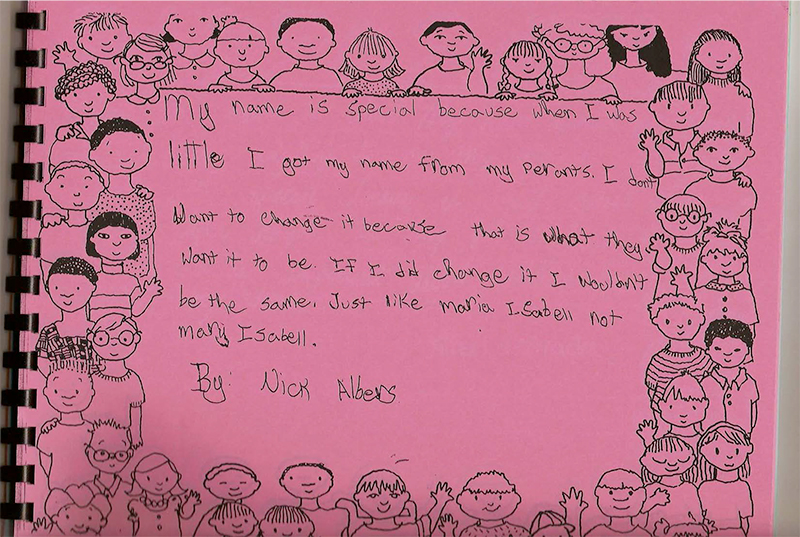 My name is special because when I was
little I got my name from my perants. I don't
Want to change it because that is what they
want it to be. If I did change it I wouldn't
be the same. Just like maria Isabell not
mary Isabell.
By: Nick Albers